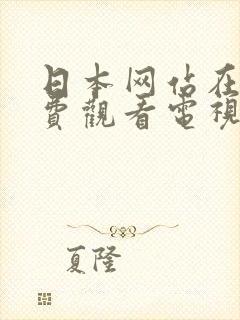 日本网站在
費觀看電視
夏隆